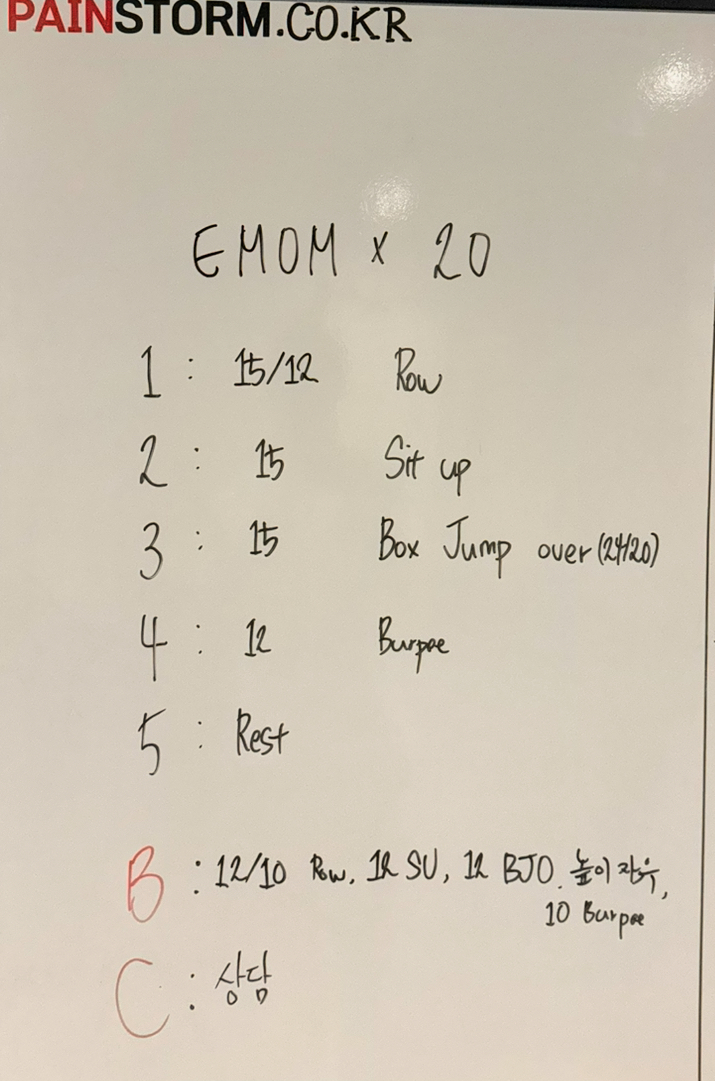 PAINSTORM.CO.KR
EMOM x 20
1 : 15/12 Row
2 : 15 Sit up
3 : 15 Box Jump over (24/20)
4 : 12 Burpee
5 : Rest
B : 12/10 Row, 12 SU, 12 BJO. 높이 자유,
10 Burpee
C : 상담